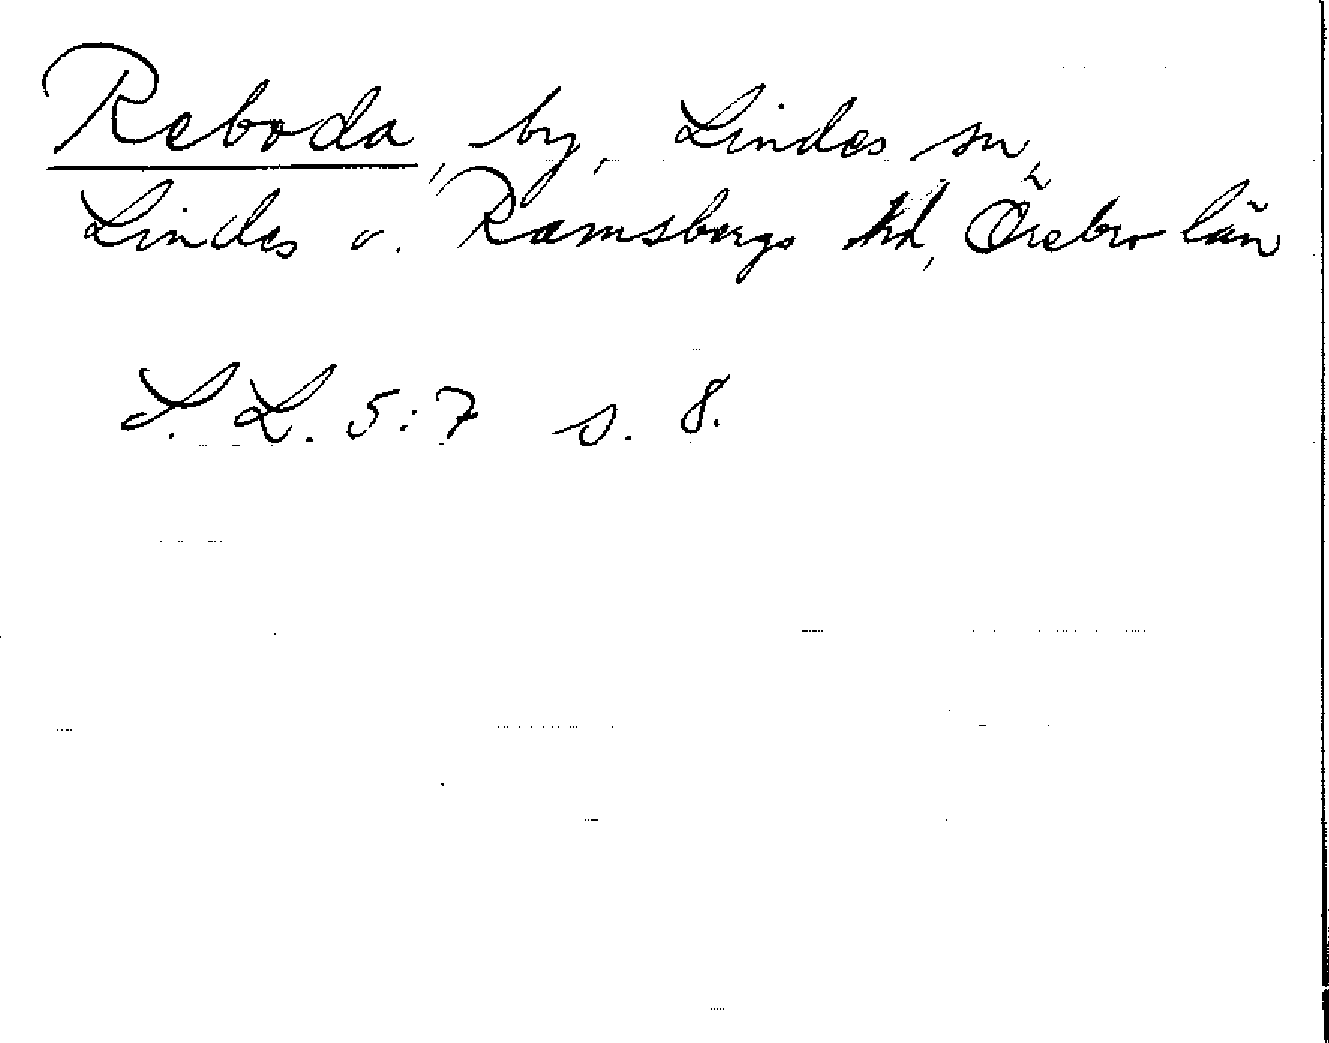 Reboda, by, Lindes sn,
Lindes o. Ramsbergs hd, Örebro län
S. L. 5:7 s. 8.